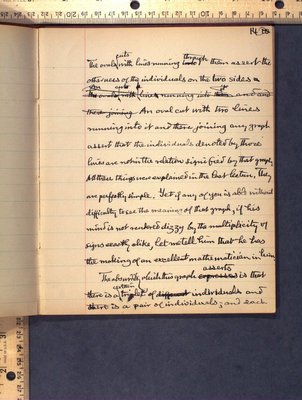 14
cuts through
The ovals with lines running into them assert the
otherness of the individuals on the two sides.
cut it
The ovals with lines running into them and and
there joining An oval cut with two lines
running into it and there joining any graph
assert that the individuals denoted by those
lines are not in the relation signified by that graph.
All these things were explained in the last lecture, they
are perfectly simple. Yet if any of you is able without
difficulty to see the meaning of that graph, if his
mind is not rendered dizzy by the multiplicity of
signs exactly alike, let me tell him that he has
the making of an excellent mathematician in him
asserts
The absurdity which this graph expresses is that
certain
there is a triplet of different individuals and
there is a pair of individuals; and each